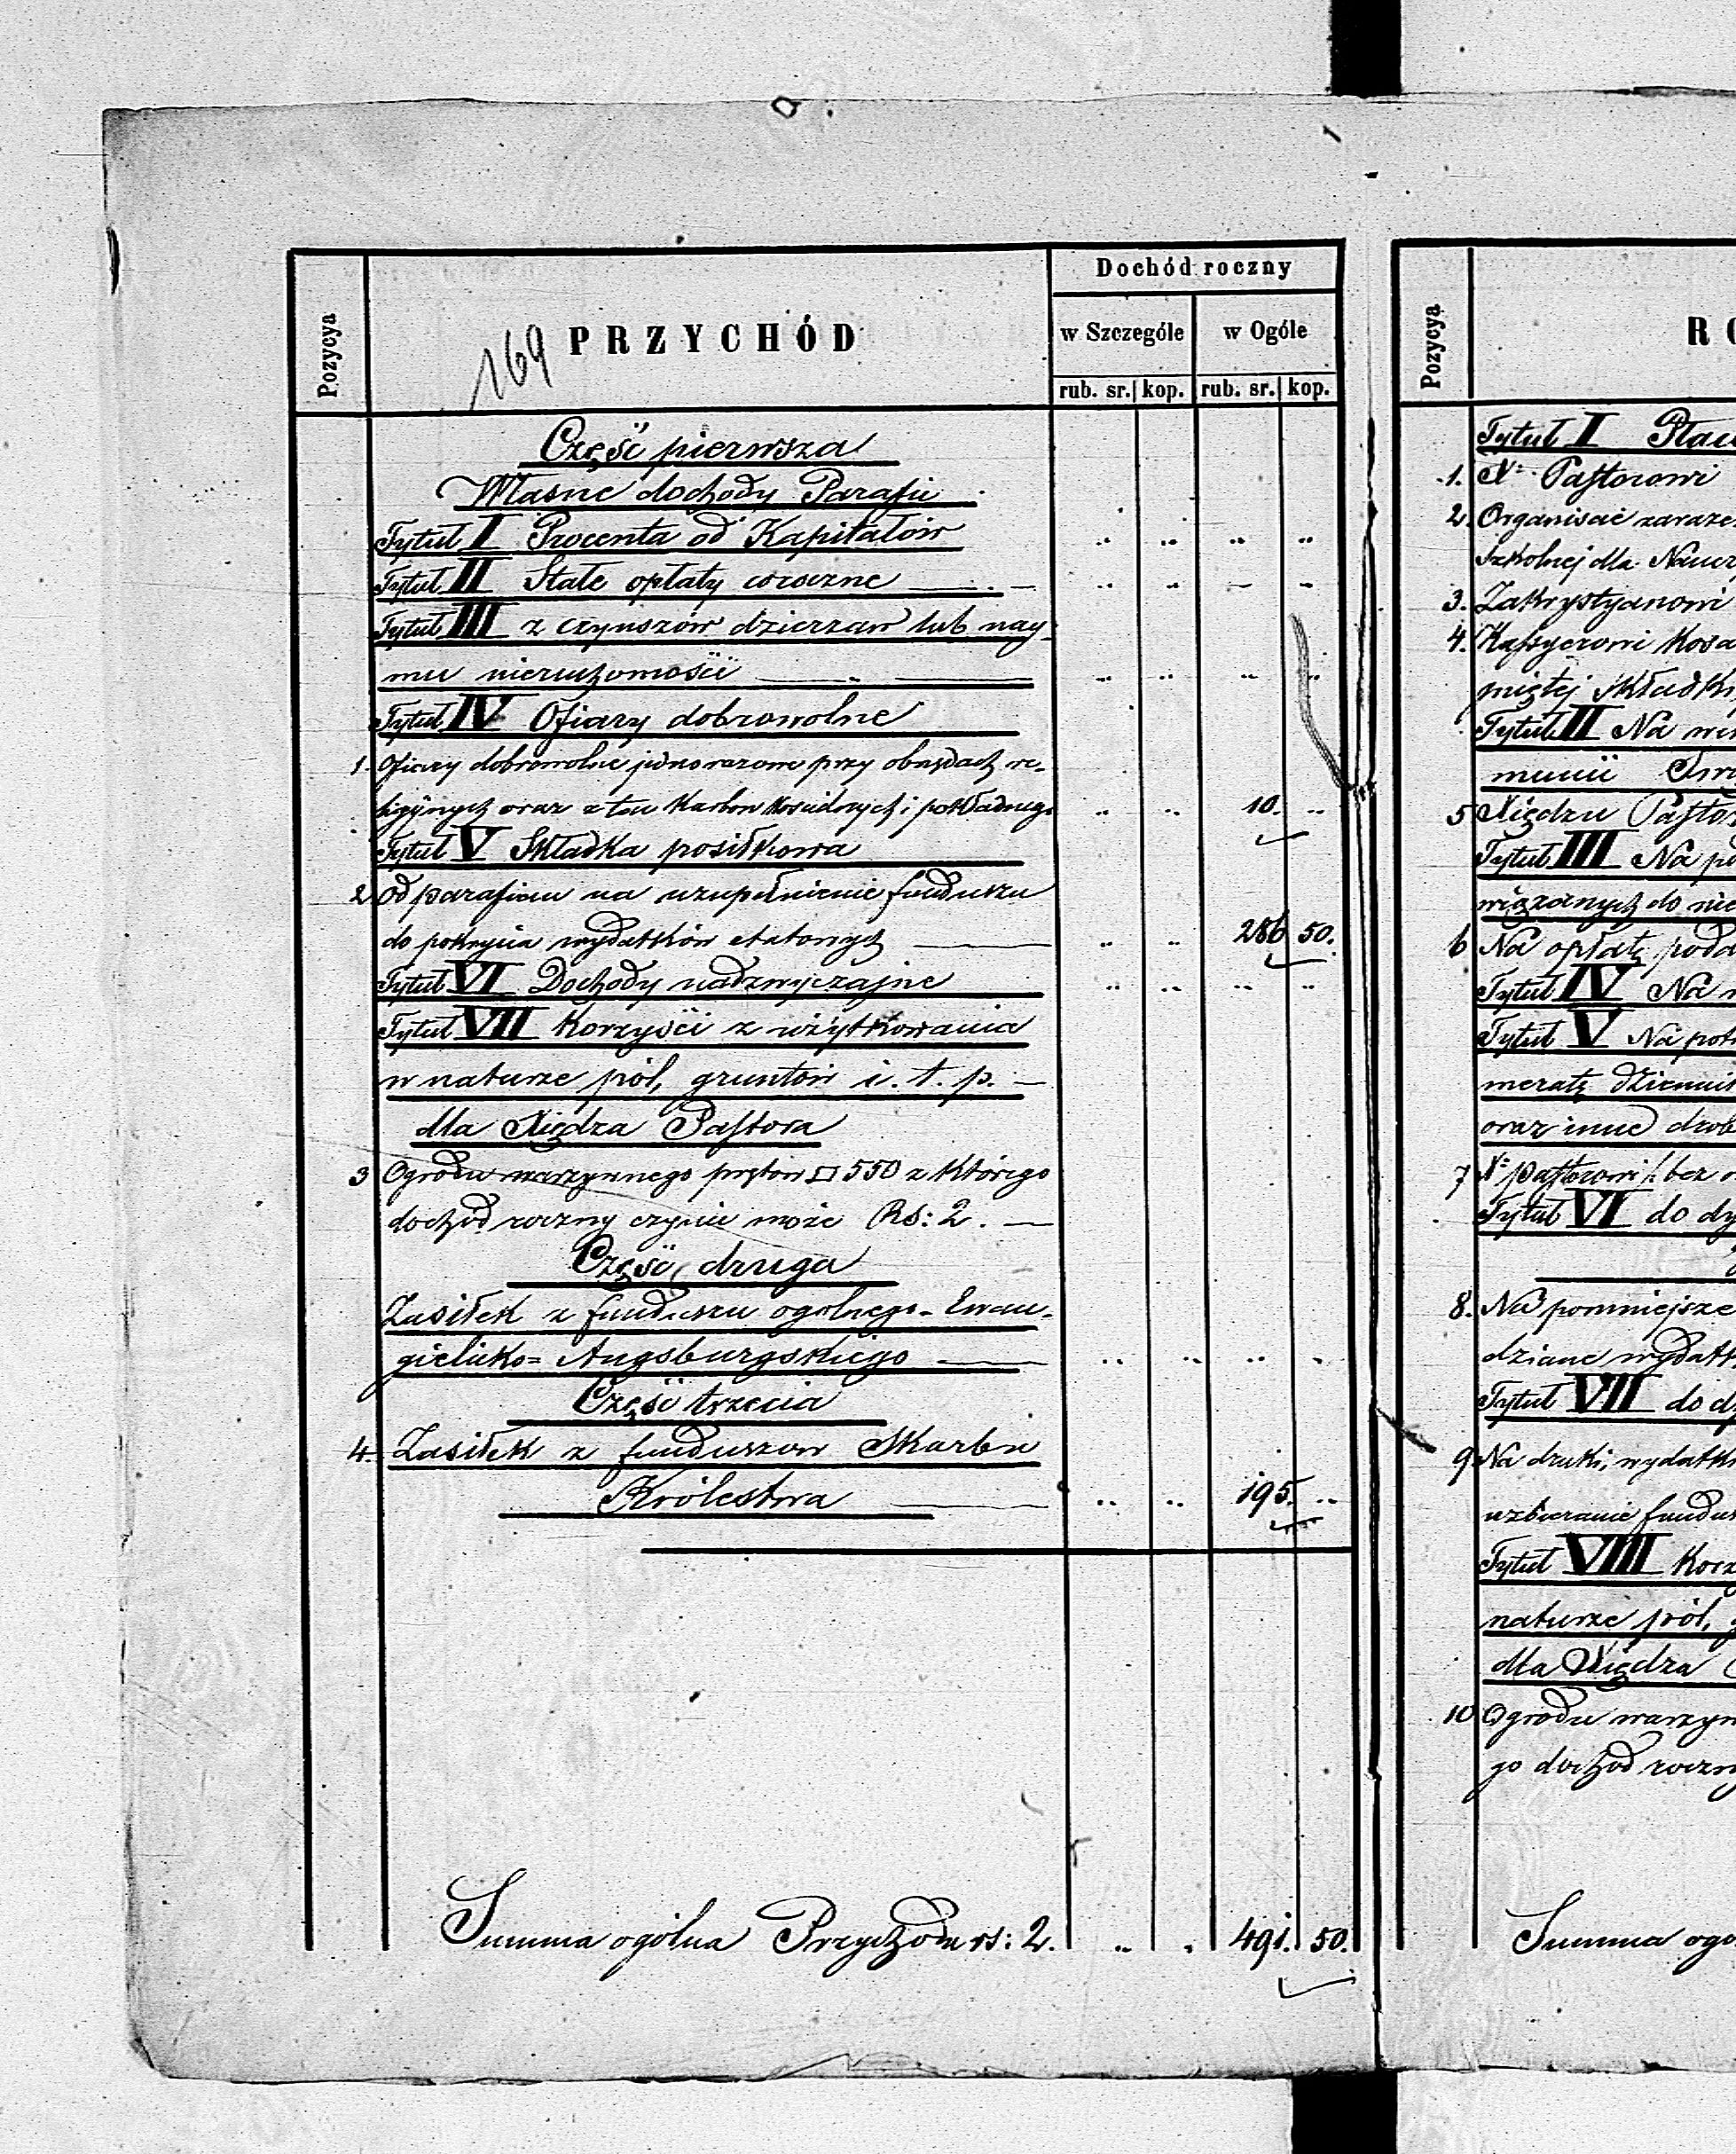 Dochód roczny
Pozycya
PRZYCHÓD
169
w Szczególe
w Ogóle
rub. sr.
kop.
rub. sr.
kop.
Część pierwsza
Własne dochody Parafii
Tytuł I Procenta od Kapitałów
Tytuł II Stałe opłaty coroczne
Tytuł III z czynszów dzierzaw lub nay-
mu nieruchomości
Tytuł IV Ofiary dobrowolne
1. Ofiary dobrowolne jednorazowe przy obrzędach re-
ligijnych oraz z ten Karbon Kościelnych i pokładnego 10.
Tytuł V Składka posiłkowa
2. Od parafian na uzupełnienie funduszu
do pokrycia wydatków etatowych 286 50.
Tytuł VI Dochody nadzwyczajne
Tytuł VII Korzyści z użytkowania
w naturze pól, gruntów i. t. p.
dla Xiędza Pastora
3 Ogrodu warzywnego prętów □ 550 z którego
dochód roczny czynić może Rs: 2.
Część druga
Zasiłek z funduszu ogólnego Ewan-
gielicko= Augsburgskiego
Część trzecia
4. Zasiłek z funduszow Skarbu
Królestwa 195.
Summa ogólna Przychodu rs: 2. 491. 50.
Pozycya
RO
Tytuł I
1. X. Pastorowi
2. Organiście zaraze
Szkolnej dla
3. Zakrystyanowi
4. Kassyerowi
Składki
Tytuł II Na
5 Xiędzu Pastor
Tytuł III Na po
wiązanych do nie
6 Na opłatę poda
Tytuł IV Na
Tytuł V Na
oraz inne drob
7 X. pastorowi bez
Tytuł VI do dy
8. Na pomniejsze
dziane wydatk
Tytuł VII do d
9. Na druki, wydatki
uzbieranie fundus
Tytuł VIII Korz
naturze pól, g
dla Xiędza
10 Ogrodu warzyw
go dochód roczn
Summa ogó